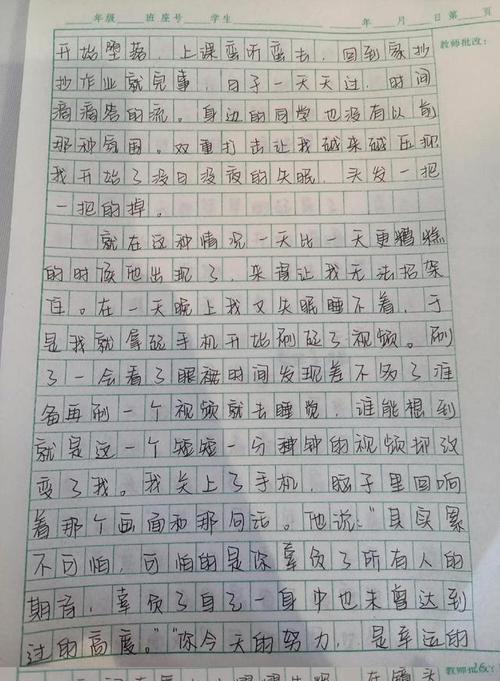 年级 班座号 学生 年 月 日第 页
教师批改:
开始堕落 上课蛮听蛮去,回到家抄
抄作业就完事,日子一天天过,时间
滴滴答的流。身边的同学也没有以前
那种氛围。双重打击让我越来越压抑
我开始了没日没夜的失眠,头发一把
一把的掉。
就在这种情况一天比一天更糟糕
的时候他出现了,来得让我无法招架
住。在一天晚上我又失眠睡不着,于
是我就拿起手机开始刷起了视频。刷
了一会看了眼被时间发现差不多了准
备再刷一个视频就去睡觉,谁能想到
就是这一个短短一分种钟的视频却改
变了我。我关上了手机,脑子里回响
着那个画面和那句话。他说:“其实累
不可怕,可怕的是你辜负了所有人的
期音,辜负了自己一身中也未曾达到
过的高度。”“你今天的努力,是幸运的
教师批改:
在镜头